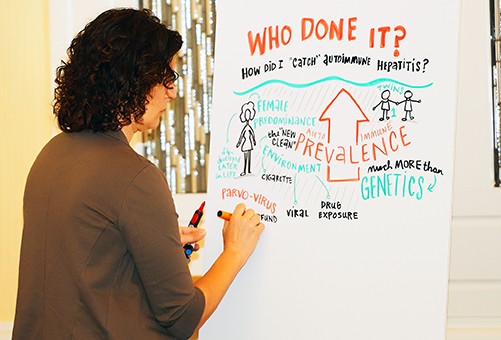 WHO DONE IT?
HOW DID I "CATCH" AUTOIMMUNE HEPATITIS?
TWINS
FEMALE
PREDOMINANCE
the "NEW
CLEAN"
AUTO
IMMUNE
PREVALENCE
LATER
IN LIFE
ENVIRONMENT
much MORE than
GENETICS
CIGARETTE
PARVO-VIRUS
VIRAL
DRUG
EXPOSURE
FUND